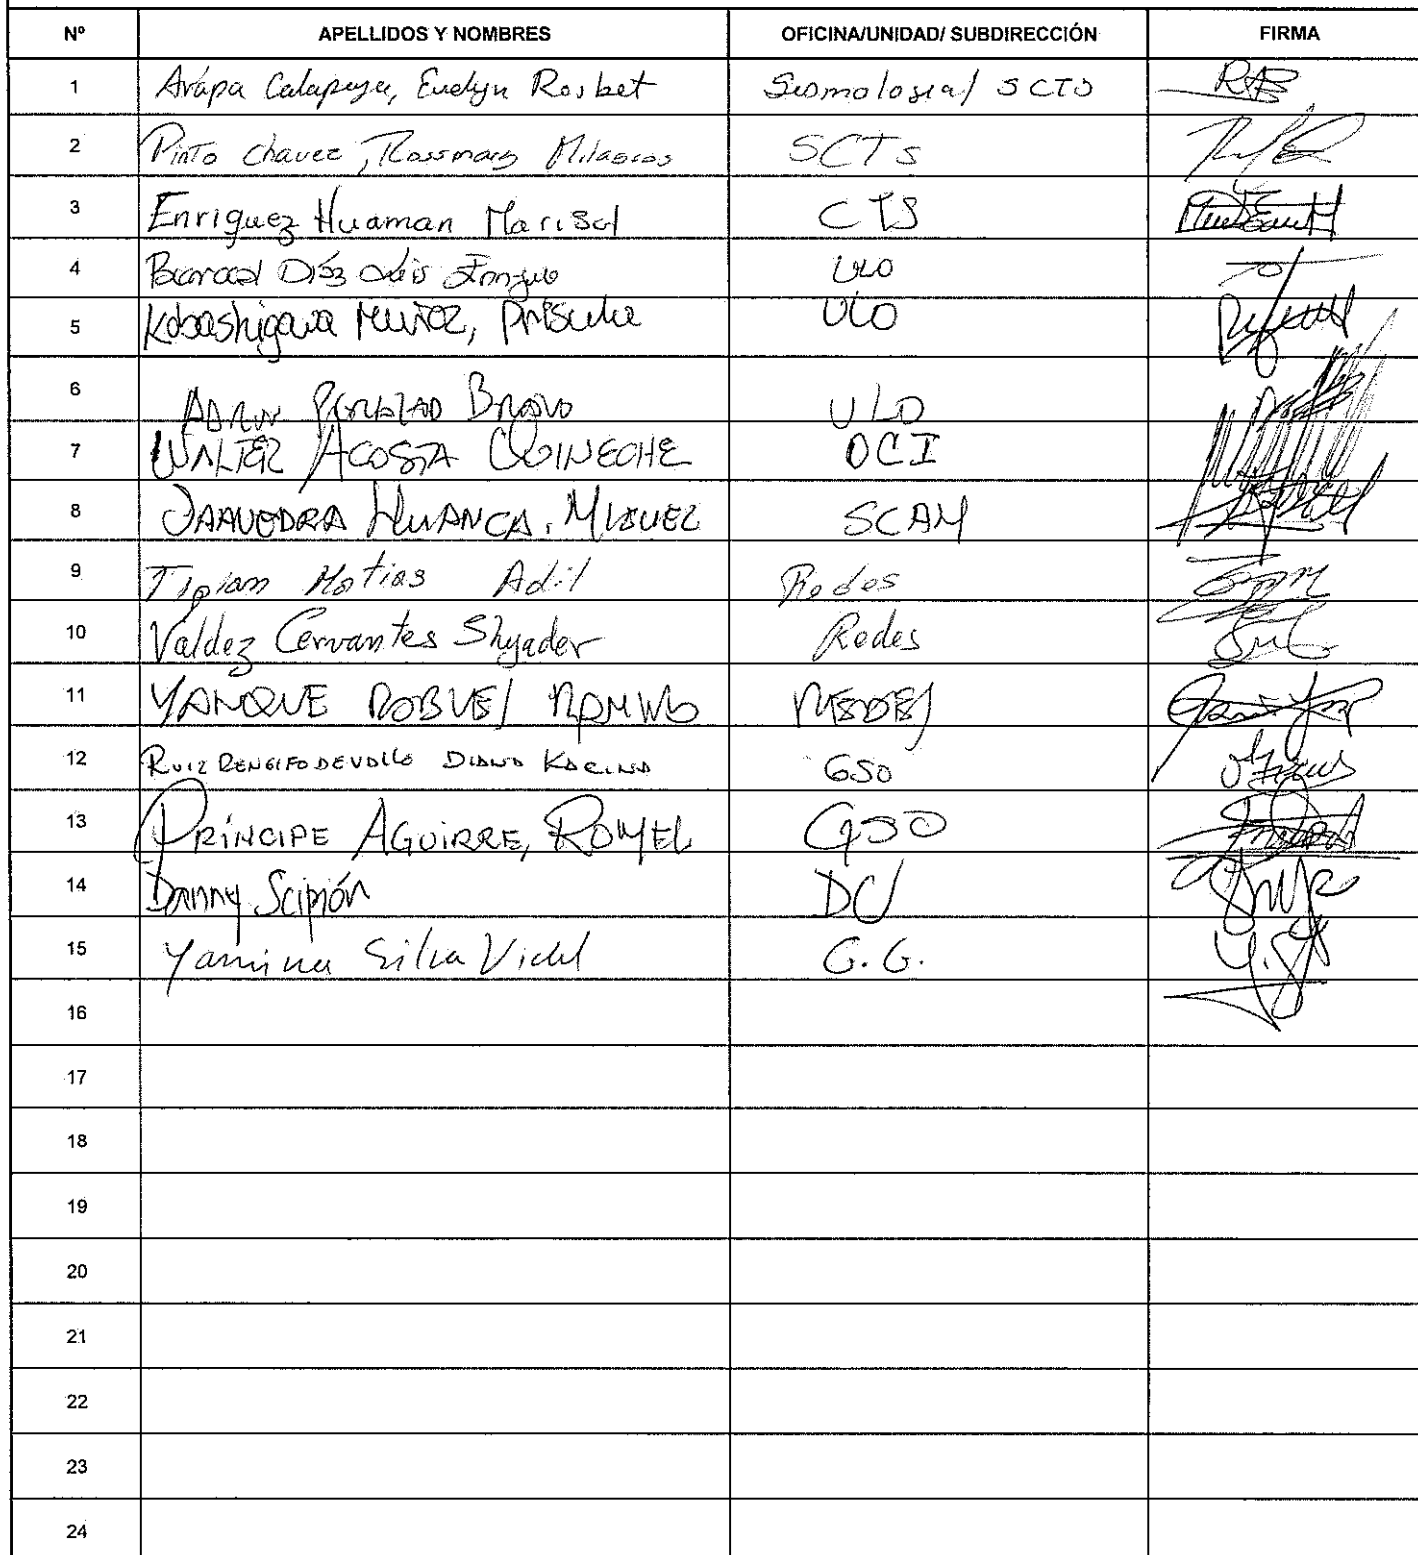 Nº APELLIDOS Y NOMBRES OFICINA/UNIDAD/ SUBDIRECCIÓN FIRMA
1 Arapa Calapuja, Evelyn Rosbet Sismologia/ SCTS
2 Pinto chavez, Rossmary Milagros SCTS
3 Enriquez Huaman Marisol CTS
4 Díaz Luis ULO
5 Kobashigawa Muñoz, Priscila ULO
6 Bravo ULO
7 WALTER ACOSTA QUINECHE OCI
8 SAAVEDRA HUANCA, MIGUEL SCAM
9 Tipian Matias Adil Redes
10 Valdez Cervantes Shyader Redes
11 YANQUE ROBLES REDES
12 RUIZ RENGIFO DEVALLE DIANA KARINA GSO
13 PRÍNCIPE AGUIRRE, ROMEL GSO
14 Danny Scipión DC
15 Yamina Silva Vidal G.G.
16
17
18
19
20
21
22
23
24